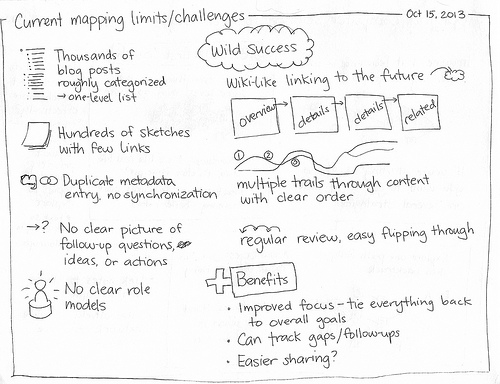 Current mapping limits/challenges
Oct 15, 2013
Thousands of
blog posts
roughly categorized
→ one-level list
Hundreds of sketches
with few links
Duplicate metadata
entry, no synchronization
→?
No clear picture of
follow-up questions,
ideas, or actions
No clear role
models
Wild Success
Wiki-like linking to the future
overview
details
details
related
1
2
3
multiple trails through content
with clear order
regular review, easy flipping through
Benefits
• Improved focus - tie everything back
to overall goals
• Can track gaps/follow-ups
• Easier sharing?